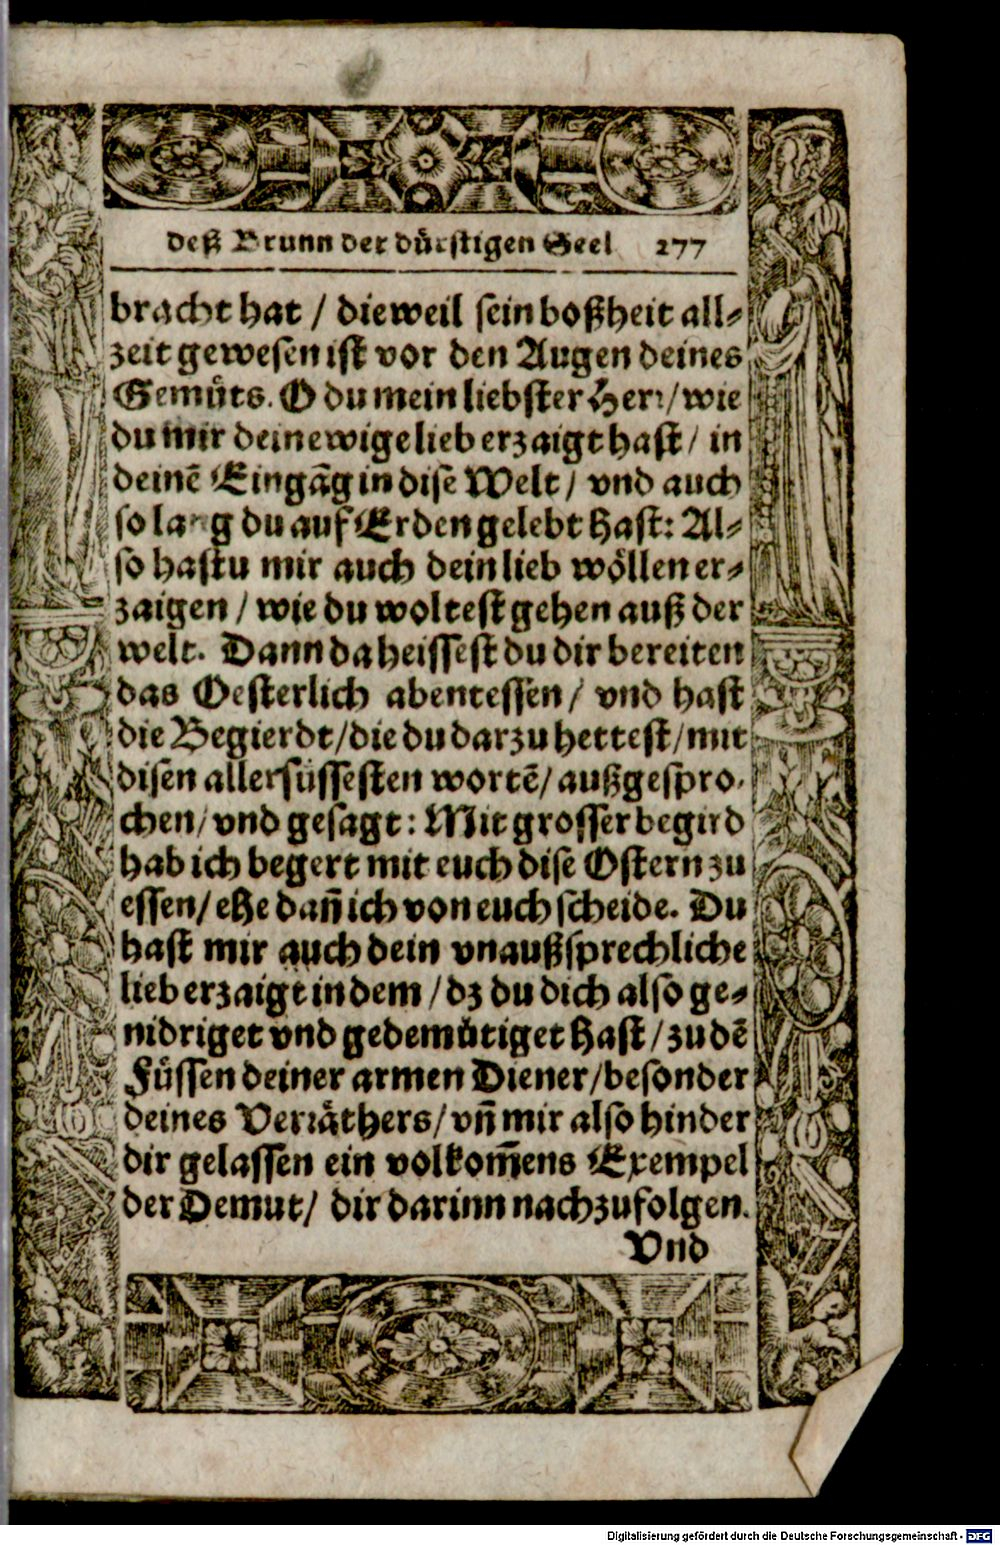 deß Brunn der dürstigen Seel 277
bracht hat / dieweil sein boßheit all-
zeit gewesen ist vor den Augen deines
Gemüts. O du mein liebster Herr / wie
du mir dein ewige lieb erzaigt hast / in
deinẽ Eingãg in dise Welt / vnd auch
so lang du auf Erden gelebt hast: Al-
so hastu mir auch dein lieb wöllen er-
zaigen / wie du woltest gehen auß der
welt. Dann da heissest du dir bereiten
das Oesterlich abentessen / vnd hast
die Begierdt / die du darzu hettest / mit
disen allersüssesten wortẽ / außgespro-
chen / vnd gesagt: Mit grosser begird
hab ich begert mit euch dise Ostern zu
essen / ehe dañ ich von euch scheide. Du
hast mir auch dein vnaußsprechliche
lieb erzaigt in dem / dz du dich also ge-
nidriget vnd gedemütiget hast / zu dẽ
Füssen deiner armen Diener / besonder
deines Verräthers / vñ mir also hinder
dir gelassen ein volkom̃ens Exempel
der Demut / dir darinn nachzufolgen.
Vnd
Digitalisierung gefördert durch die Deutsche Forschungsgemeinschaft - DFG